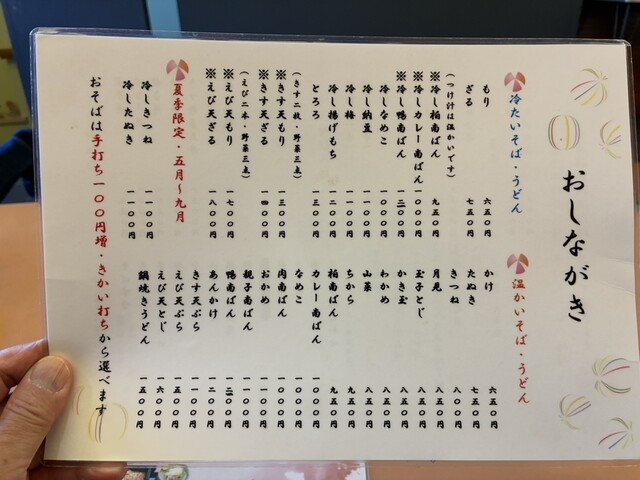 おしながき
冷たいそば・うどん
もり 六五〇円
ざる 七五〇円
(つけ汁は温かいです)
※冷し柏南ばん 九五〇円
※冷しカレー南ばん 一〇〇〇円
※冷し鴨南ばん 一二〇〇円
冷しなめこ 一〇〇〇円
冷し納豆
冷し梅
冷し揚げもち
とろろ 一三〇〇円
(きす二枚・野菜三点)
※きす天もり 一三〇〇円
※きす天ざる 一四〇〇円
(えび二本・野菜三点)
※えび天もり 一七〇〇円
※えび天ざる 一八〇〇円
夏季限定・五月~九月
冷しきつね 一一〇〇円
冷したぬき 一一〇〇円
温かいそば・うどん
かけ 六五〇円
たぬき 七五〇円
きつね 八〇〇円
月見 八五〇円
玉子とじ 八五〇円
かき玉 八五〇円
わかめ 八五〇円
山菜 八五〇円
ちから 九五〇円
柏南ばん 九五〇円
カレー南ばん 一〇〇〇円
なめこ 一〇〇〇円
肉南ばん 一〇〇〇円
おかめ
親子南ばん
鴨南ばん 一二〇〇円
あんかけ 一二〇〇円
きす天ぷら
えび天ぷら 一五〇〇円
えび天とじ 一六〇〇円
鍋焼きうどん 一五〇〇円
おそばは手打ち一〇〇円増・きかい打ちから選べます